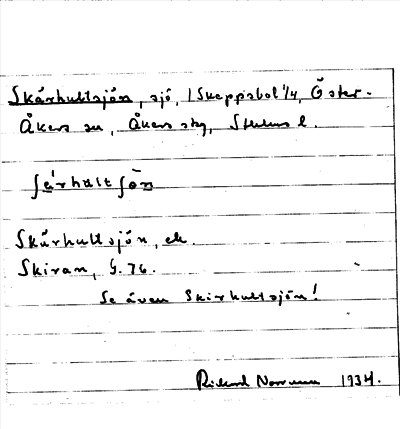 Skärhultsjön, sjö, 1 Skeppsbol 1/4, Öster-
Åkers sn, Åkers skg, Sthlms l.
ʃärhult ʃön
Skärhultsjön, ek.
Skiran, G. 76.
Se även Skirhultsjön!
Rickard 1934.